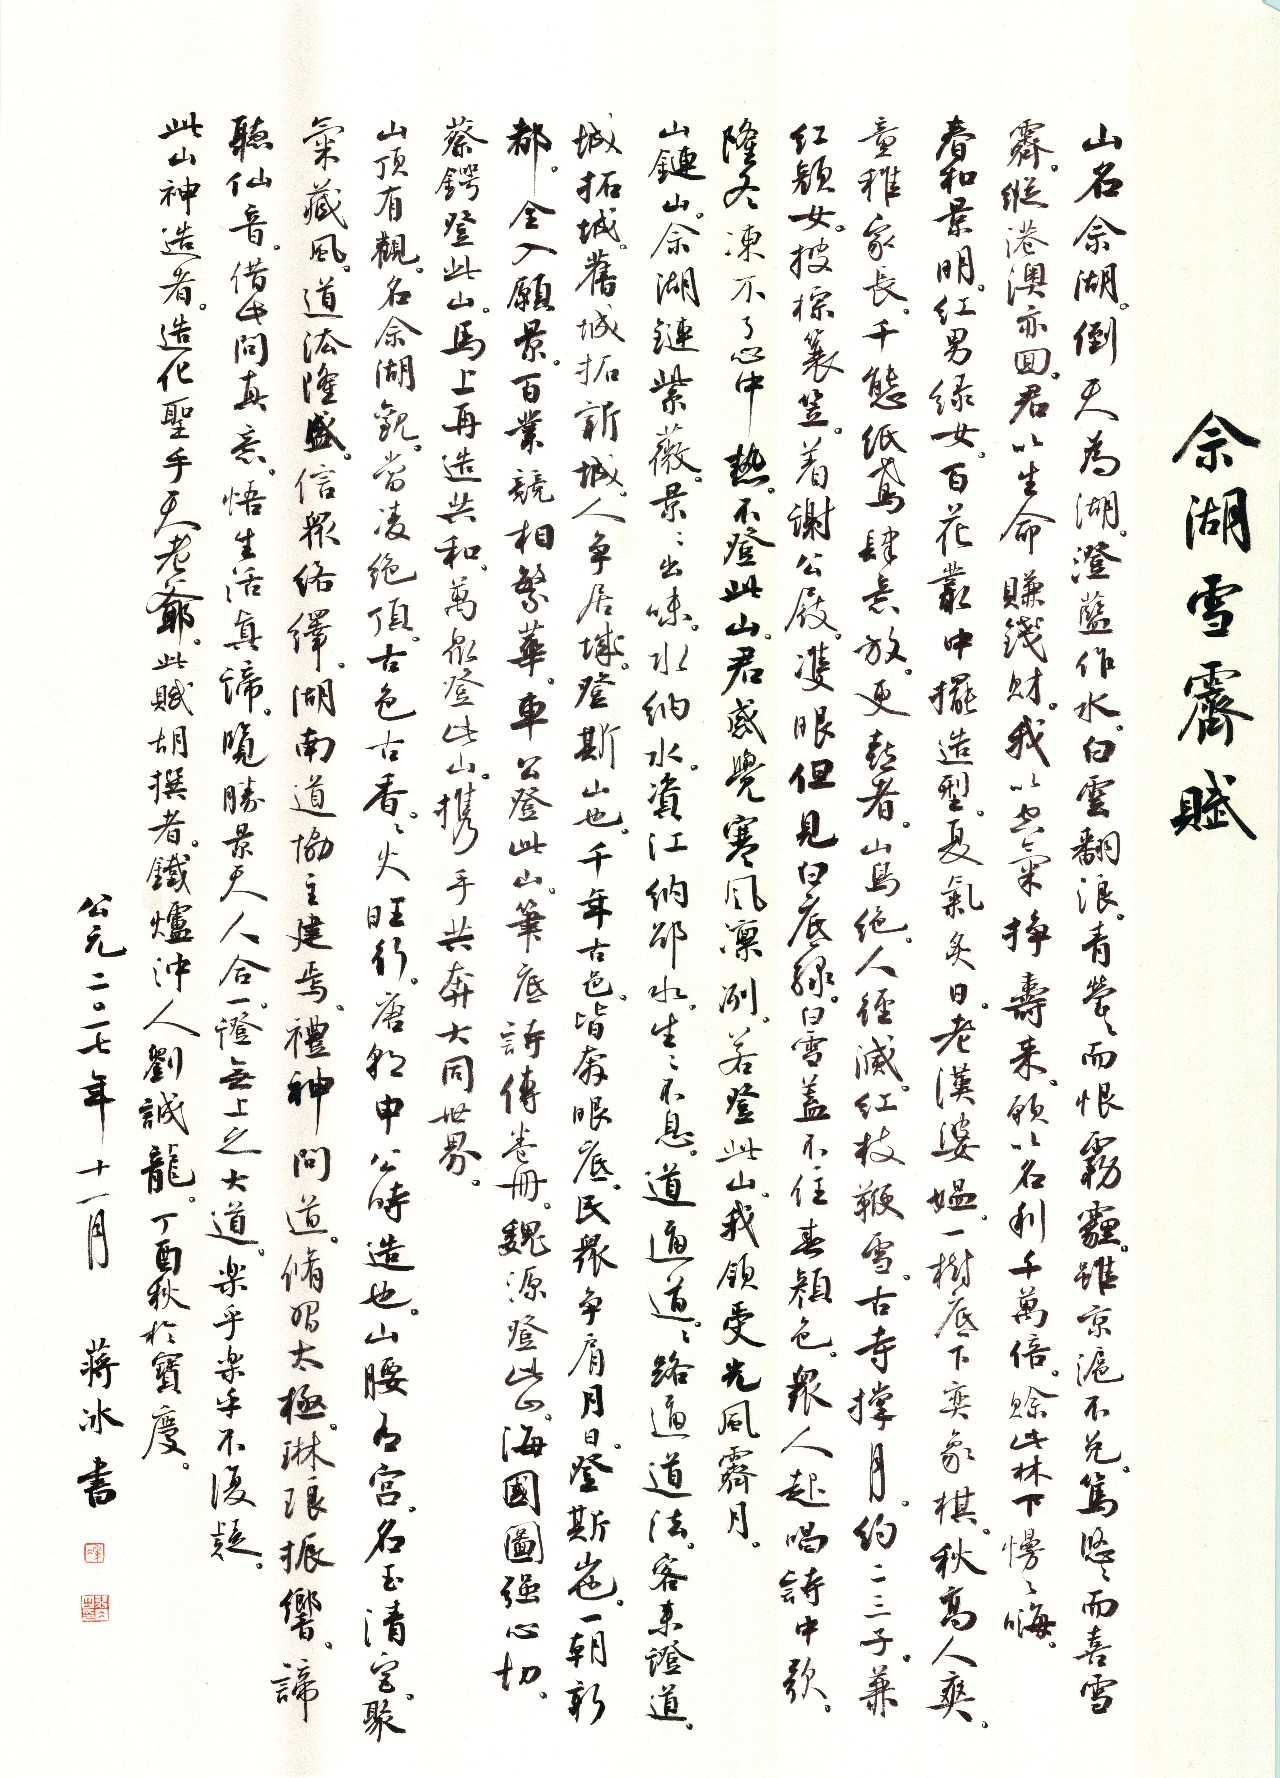 佘湖雪霽賦
山名佘湖。倒天為湖。澄藍作水。白雲翻浪。青鶯鶯而恨霧霾。雖京滬不免。篤悠悠而喜雪
霽。縱港澳亦回。君以生命賺錢財。我以空氣掙壽來。願以名利千萬倍。賒此林下慢慢晦。
春和景明。紅男绿女。百花叢中擺造型。夏氣炙日。老漢婆媼。一樹底下奕象棋。秋高人爽。
童稚家長。千態纸鳶肆意放。更喜者。山鳥绝。人徑滅。红枝鞭雪。古寺撑月。约二三子。兼
红颜女。披棕蓑笠。着謝公屐。雙眼但見白底綠。白雪蓋不住春顔色。眾人起唱詩中歌。
隆冬凍不了心中熱。不登此山。君感覺寒風凜冽。若登此山。我領受光風霽月。
山鏈山。佘湖鏈紫薇。景景出味。水納水。資江納邵水。生生不息。道通道。道路通道法。客来證道。
城拓城。舊城拓新城。人争居城。登斯山也。千年古邑。皆奔眼底。民眾争肩月日。登斯山也。一朝新
都。全入願景。百業競相繁華。車公登此山。筆底詩傳卷冊。魏源登此山。海國圖强心切。
蔡鍔登此山。馬上再造共和。萬众登此山。携手共奔大同世界。
山顶有觀。名佘湖觀。當凌绝顶。古色古香。香火旺行。唐初申公時造也。山腰有宫。名玉清宫。聚
氣藏風。道法隆盛。信眾络繹。湖南道協主建焉。禮神問道。脩習太極。琳琅振響。諦
聽仙音。借此問真意。悟生活真諦。覽勝景天人合一。證無上之大道。楽乎楽乎不復疑。
此山神造者。造化聖手天老爺。此賦胡撰者。鐵爐沖人劉誠龍。丁酉秋於寶慶。
公元二〇一七年十一月 蒋冰書